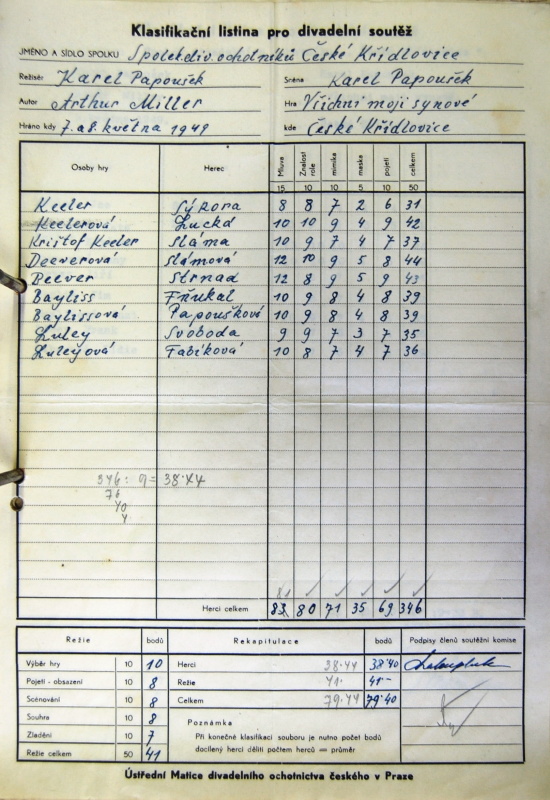 Klasifikační listina pro divadelní soutěž
JMÉNO A SÍDLO SPOLKU Spolek div. ochotníků České Křídlovice
Režisér Karel Papoušek Scéna Karel Papoušek
Autor Arthur Miller Hra Všichni moji synové
Hráno kdy 7. a 8. května 1949 kde České Křídlovice
Osoby hry Herec Mluva Znalost role mimika maska pojetí celkem
15 10 10 10 10 50
Keeler Sýkora 8 8 7 2 6 31
Keelerová Lucká 10 10 9 4 9 42
Krištof Keeler Sláma 10 9 7 4 7 37
Deeverová Slámová 12 10 9 5 8 44
Deever Strnad 12 8 9 5 9 43
Bayliss Fňukal 10 9 8 4 8 39
Baylissová Papoušková 10 9 8 4 8 39
Luley Svoboda 9 9 7 3 7 35
Luleyová Fabíková 10 8 7 4 7 36
346 : 9 = 38·44
76
40
4
Herci celkem 83 80 71 35 69 346
Režie bodů Rekapitulace bodů Podpisy členů soutěžní komise
Výběr hry 10 10 Herci 38·44 38·40
Pojetí - obsazení 10 8 Režie 41· 41·—
Scénování 10 8 Celkem 79·44 79·40
Souhra 10 8 Poznámka
Zladění 10 7 Při konečné klasifikaci souboru je nutno počet bodů
Režie celkem 50 41 docílený herci děliti počtem herců = průměr
Ústřední Matice divadelního ochotnictva českého v Praze